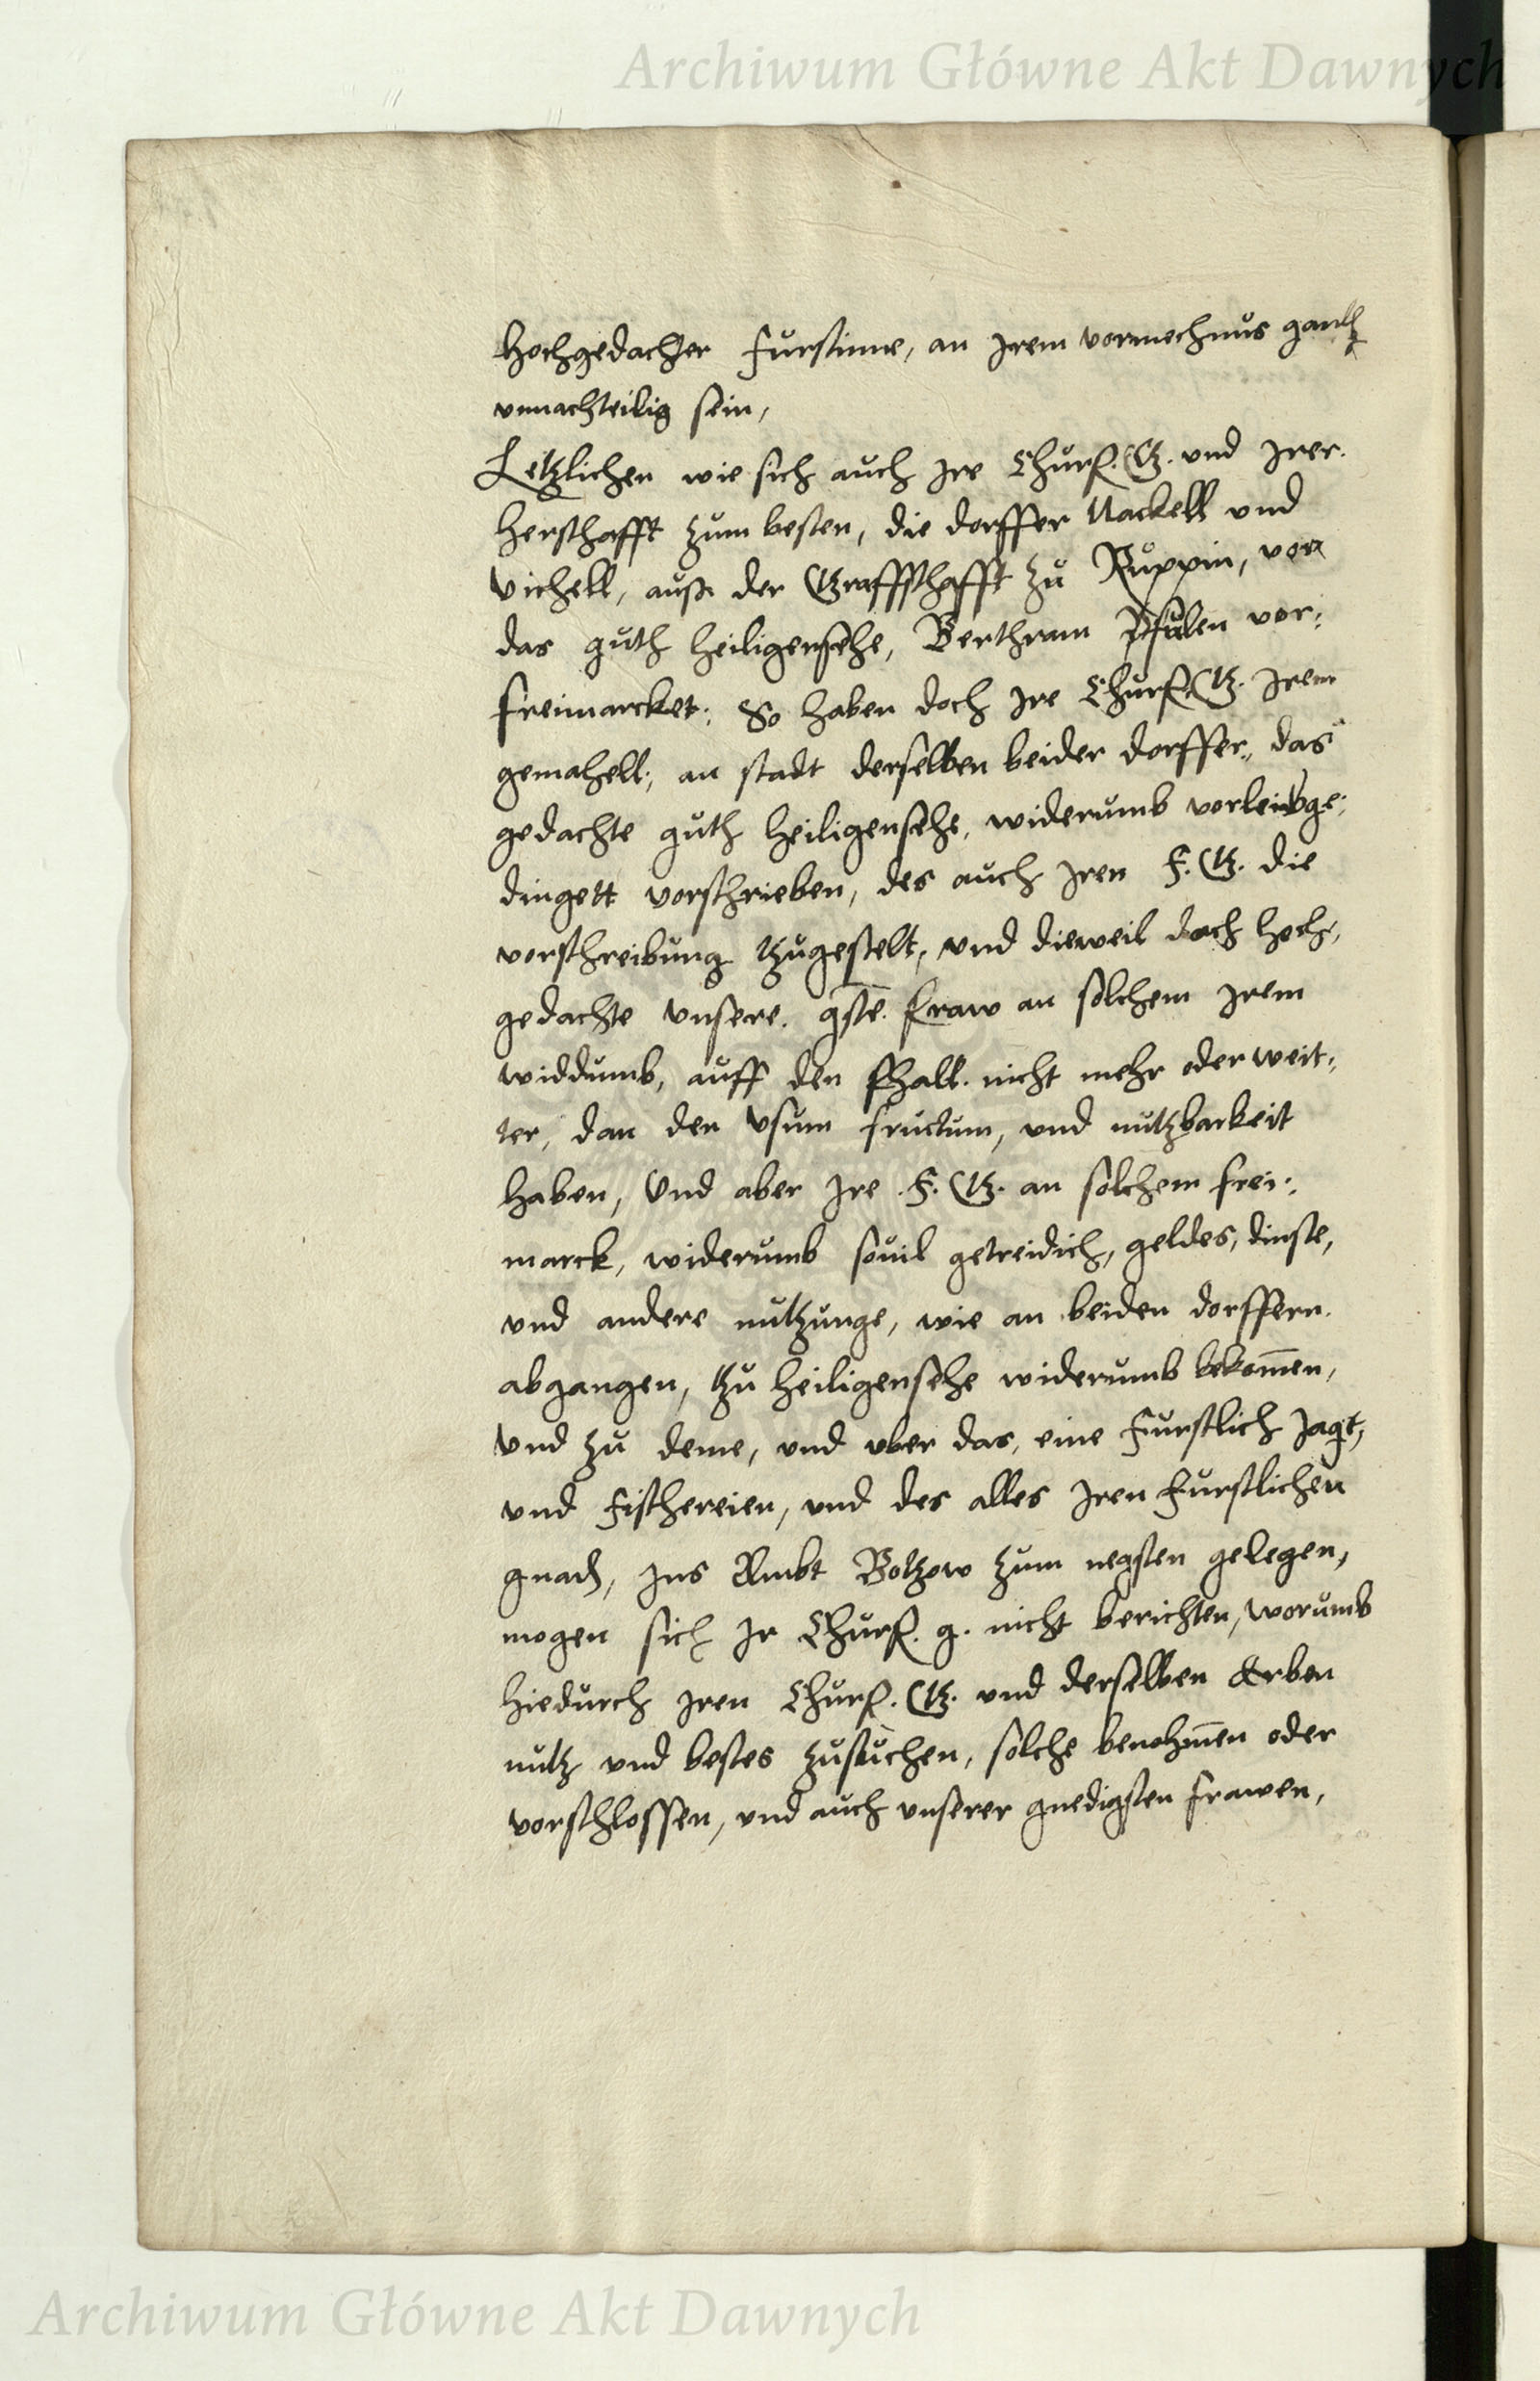 Archiwum Główne Akt Dawnych
hochgedachter Furstinne, an Jrem vormechnus gantz
unnachteilig sein,
Letzlichen wie sich auch Jre Churf. G. und Jrer
herschafft zum besten, die dorffer Nackell und
Vichell, auß der Graffschafft zu Ruppin, vor
das guth heiligensehe, Berthram Pfulen vor:
freimarcket: So haben doch Jre Churf. G. Jrem
gemahell: an stadt derselben beider dorffer, das
gedachte guth heiligensehe, widerumb vorleibge:
dingett vorschrieben, des auch Jren F. G. die
vorschreibung tzugestelt, und dieweil doch hoch:
gedachte unsere. gste. fraw an solchem Jrem
widdumb, auff den fhall nicht mehr oder weit:
ter, dan den Usum fructum, und nutzbarkeit
haben, Und aber Jre F. G. an solchem frei:
marck, widerumb souil getreidich, geldes, dinste,
und andere nutzunge, wie an beiden dorffern
abgangen, tzu heiligensehe widerumb bekom̄en,
Und zu deme, und uber das, eine Furstlich Jagt,
und Fischereien, und des alles Jren Furstlichen
gnad, Jns Ambt Botzow zum negsten gelegen,
mogen sich Jr Churf. g. nicht berichten, worumb
hiedurch Jren Churf. G. und derselben Erben
nutz und bestes zusuchen, solche benohm̄en oder
vorschlossen, und auch unserer gnedigsten frawen,
Archiwum Główne Akt Dawnych